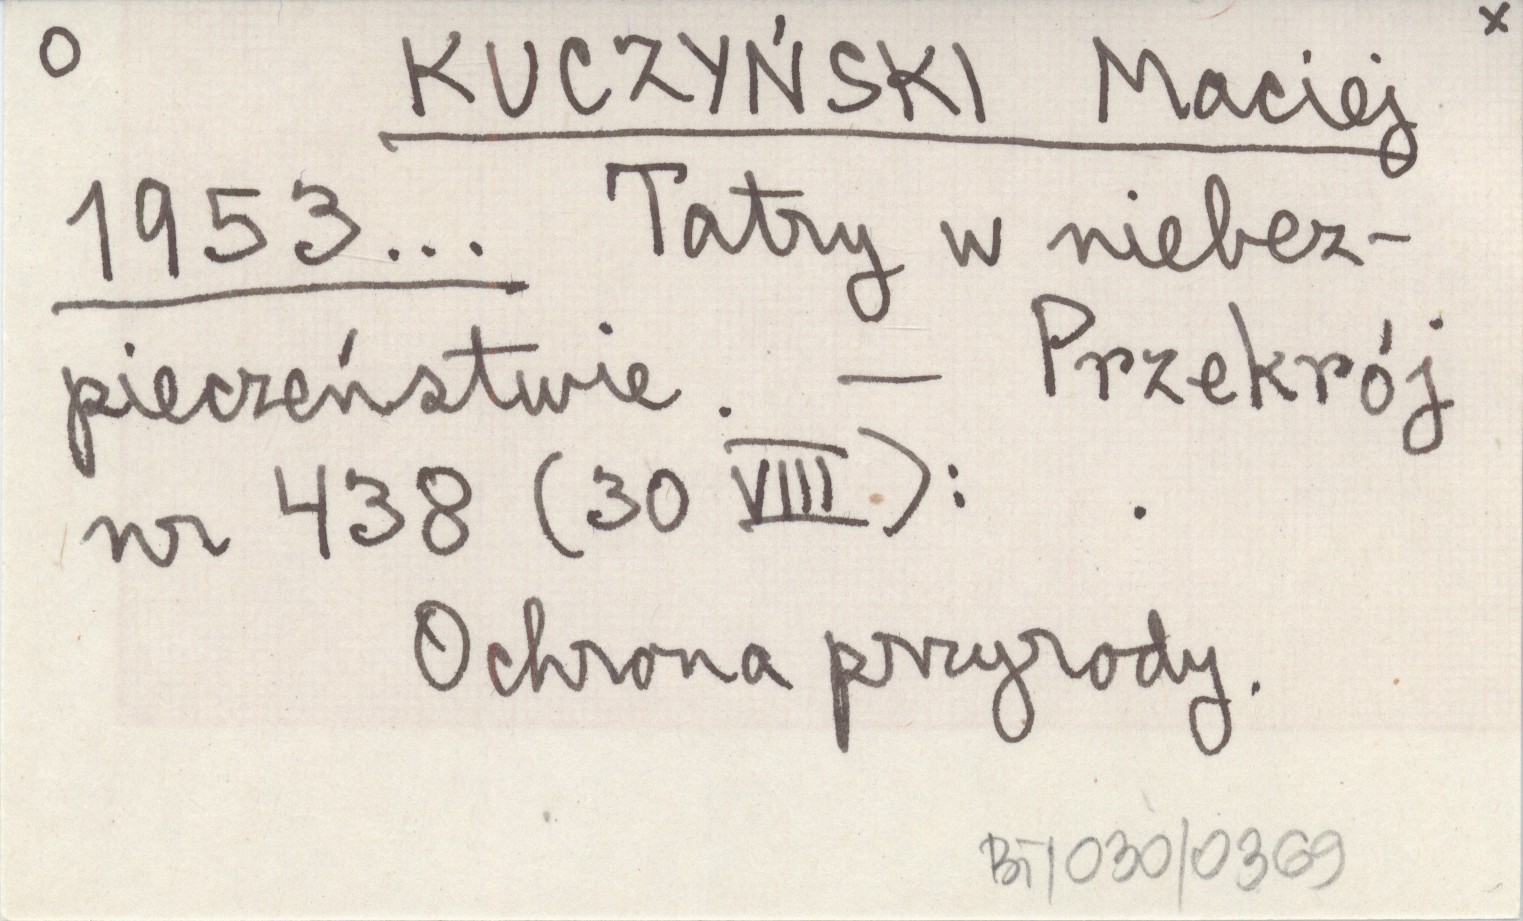 O KUCZYŃSKI Maciej x
1953... Tatry w niebez-
pieczeństwie. — Przekrój
nr 438 (30 VIII.): .
Ochrona przyrody.
BT/030/0369